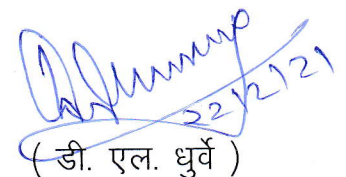 22/2/21
( डी. एल. धुर्वे )